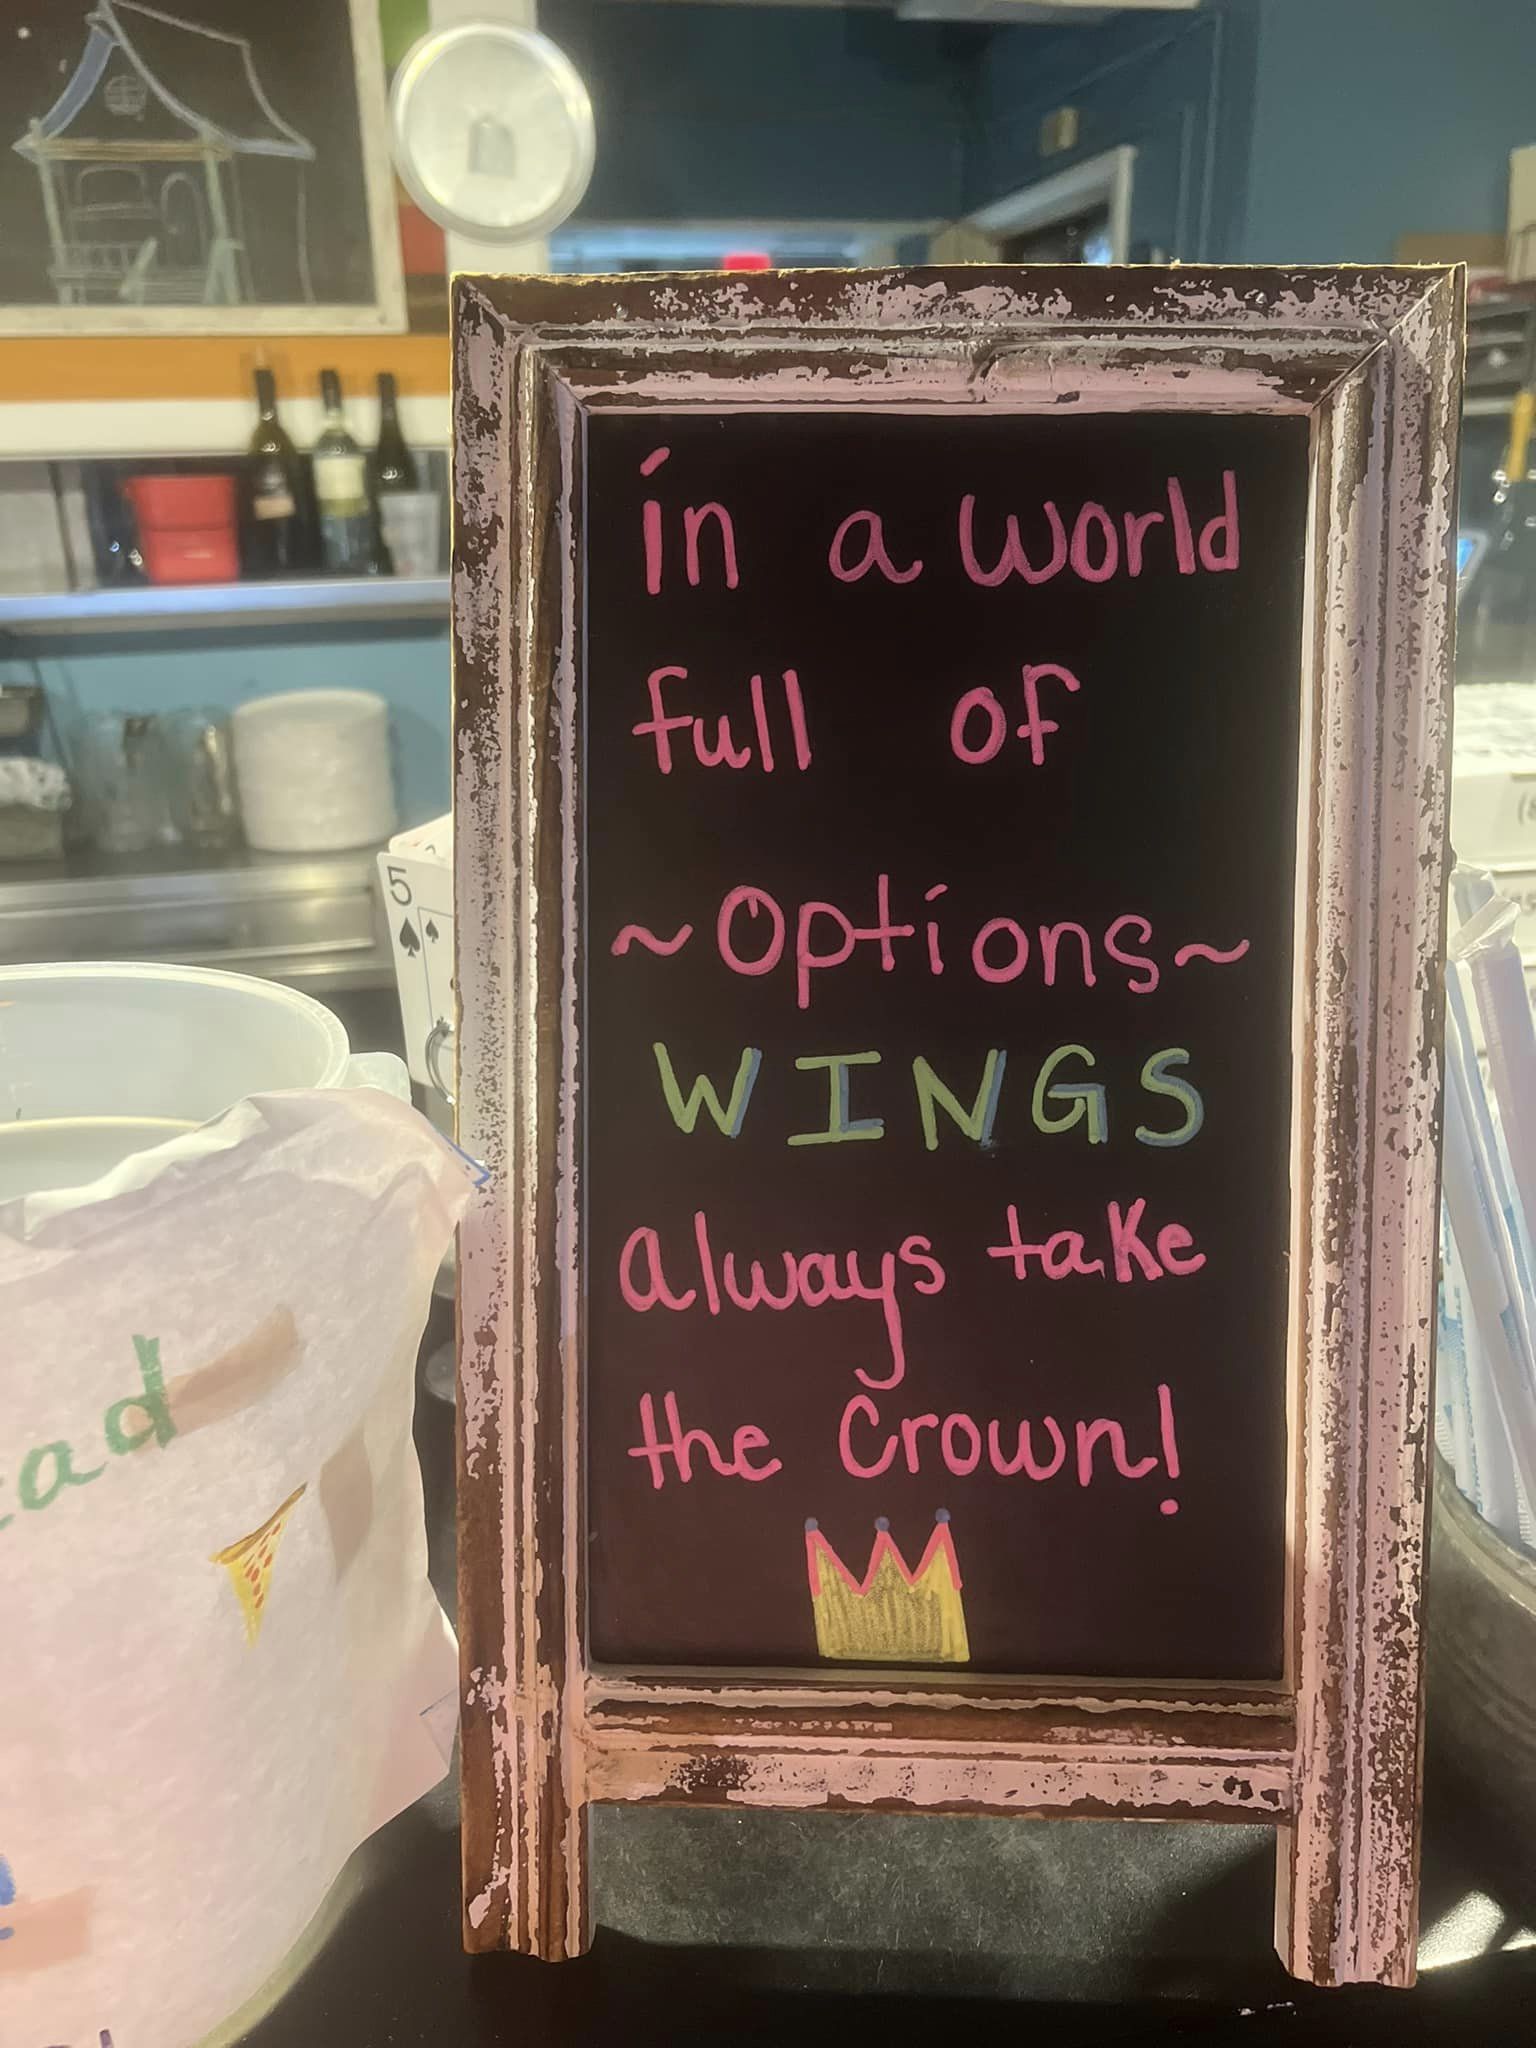 in a world
full of
~Options~
WINGS
always take
the Crown!
5
ad